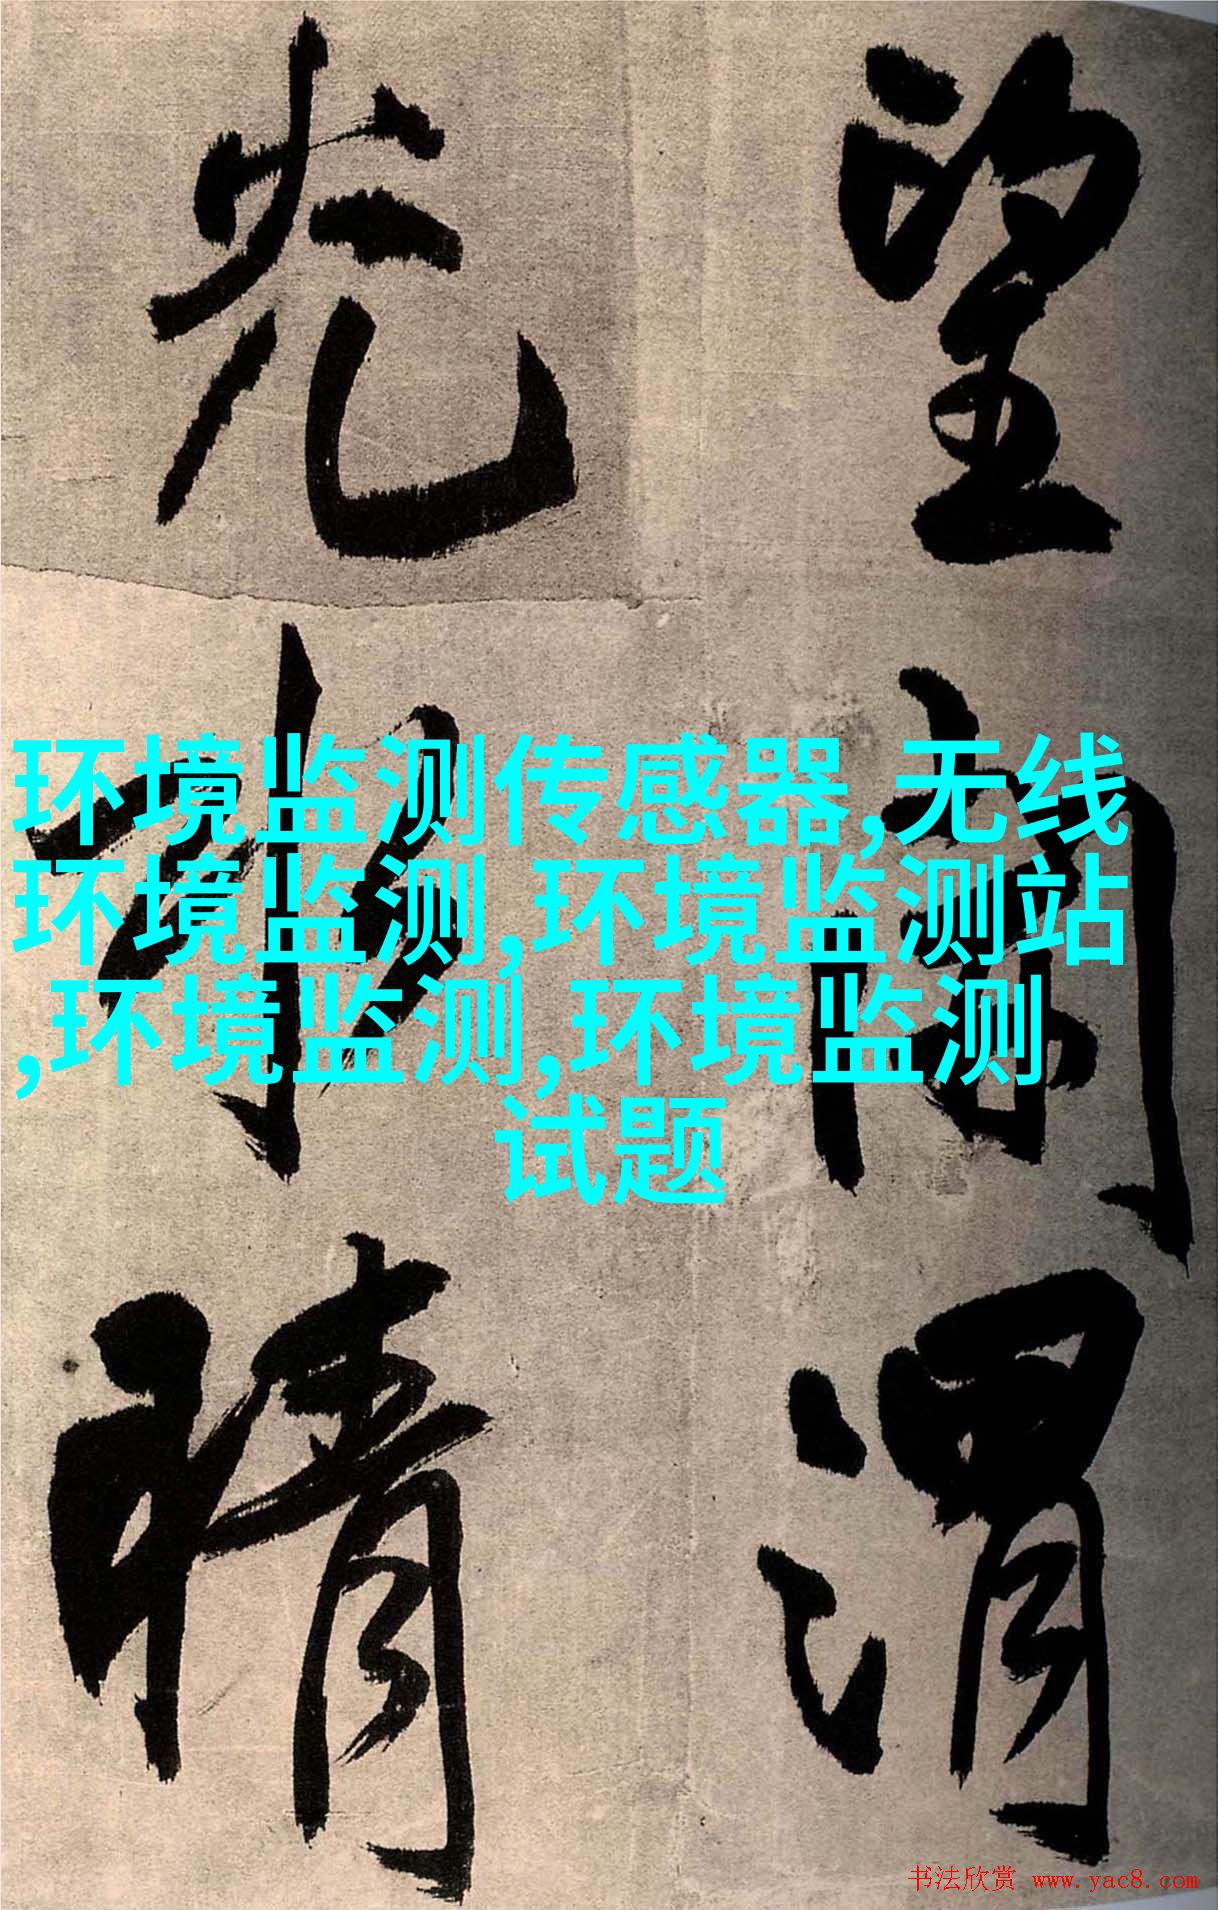 望渭
光晴
环境监测传感器,无线
环境监测,环境监测站
,环境监测,环境监测
试题
书法欣赏 www.yac8.com